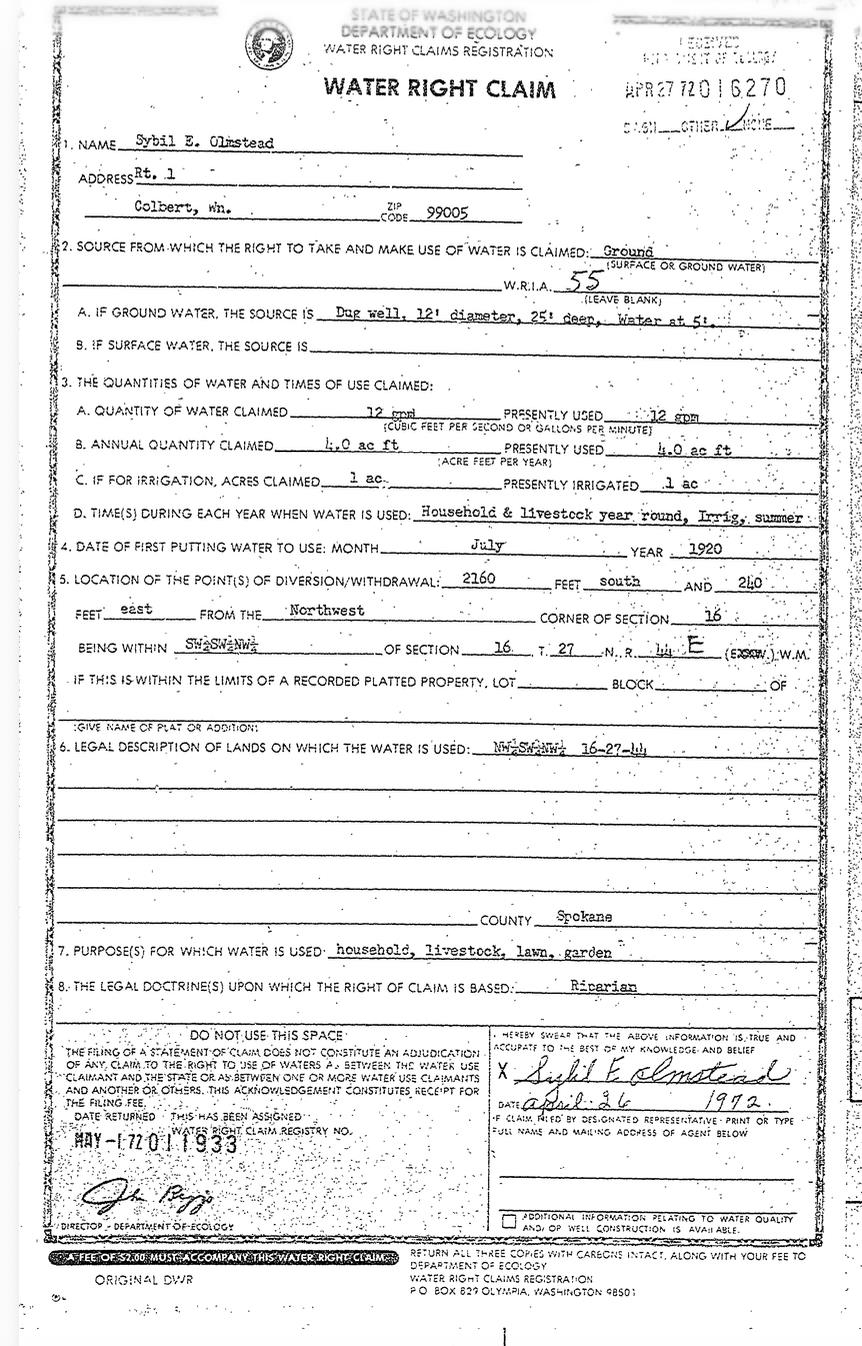 STATE OF WASHINGTON
DEPARTMENT OF ECOLOGY
WATER RIGHT CLAIMS REGISTRATION
WATER RIGHT CLAIM
RECEIVED
DEPARTMENT OF ECOLOGY
APR 27 72 016270
CASH OTHER NONE
1. NAME Sybil E. Olmstead
ADDRESS Rt. 1
Colbert, Wn. ZIP CODE 99005
2. SOURCE FROM WHICH THE RIGHT TO TAKE AND MAKE USE OF WATER IS CLAIMED: Ground
(SURFACE OR GROUND WATER)
W.R.I.A. 55
(LEAVE BLANK)
A. IF GROUND WATER, THE SOURCE IS Dug well, 12' diameter, 25' deep, Water at 5'.
B. IF SURFACE WATER, THE SOURCE IS
3. THE QUANTITIES OF WATER AND TIMES OF USE CLAIMED:
A. QUANTITY OF WATER CLAIMED 12 gpm PRESENTLY USED 12 gpm
(CUBIC FEET PER SECOND OR GALLONS PER MINUTE)
B. ANNUAL QUANTITY CLAIMED 4.0 ac ft PRESENTLY USED 4.0 ac ft
(ACRE FEET PER YEAR)
C. IF FOR IRRIGATION, ACRES CLAIMED 1 ac. PRESENTLY IRRIGATED 1 ac
D. TIME(S) DURING EACH YEAR WHEN WATER IS USED: Household & livestock year round, Irrig, summer
4. DATE OF FIRST PUTTING WATER TO USE: MONTH July YEAR 1920
5. LOCATION OF THE POINT(S) OF DIVERSION/WITHDRAWAL: 2160 FEET south AND 240
FEET east FROM THE Northwest CORNER OF SECTION 16
BEING WITHIN SW¼SW¼NW¼ OF SECTION 16 T. 27 N., R. 44 E (E W.) W.M.
IF THIS IS WITHIN THE LIMITS OF A RECORDED PLATTED PROPERTY, LOT BLOCK OF
(GIVE NAME OF PLAT OR ADDITION)
6. LEGAL DESCRIPTION OF LANDS ON WHICH THE WATER IS USED: NW¼SW¼NW¼ 16-27-44
COUNTY Spokane
7. PURPOSE(S) FOR WHICH WATER IS USED: household, livestock, lawn, garden
8. THE LEGAL DOCTRINE(S) UPON WHICH THE RIGHT OF CLAIM IS BASED: Riparian
DO NOT USE THIS SPACE
THE FILING OF A STATEMENT OF CLAIM DOES NOT CONSTITUTE AN ADJUDICATION
OF ANY CLAIM TO THE RIGHT TO USE OF WATERS AS BETWEEN THE WATER USE
CLAIMANT AND THE STATE OR AS BETWEEN ONE OR MORE WATER USE CLAIMANTS
AND ANOTHER OR OTHERS. THIS ACKNOWLEDGEMENT CONSTITUTES RECEIPT FOR
THE FILING FEE.
DATE RETURNED THIS HAS BEEN ASSIGNED
WATER RIGHT CLAIM REGISTRY NO.
MAY -1 72 011933
DIRECTOR - DEPARTMENT OF ECOLOGY
I HEREBY SWEAR THAT THE ABOVE INFORMATION IS TRUE AND
ACCURATE TO THE BEST OF MY KNOWLEDGE AND BELIEF
X Sybil E Olmstead
DATE April 26 1972.
IF CLAIM FILED BY DESIGNATED REPRESENTATIVE, PRINT OR TYPE
FULL NAME AND MAILING ADDRESS OF AGENT BELOW
ADDITIONAL INFORMATION RELATING TO WATER QUALITY
AND/OR WELL CONSTRUCTION IS AVAILABLE.
A FEE OF $2.00 MUST ACCOMPANY THIS WATER RIGHT CLAIM
ORIGINAL DWR
RETURN ALL THREE COPIES WITH CARBONS INTACT, ALONG WITH YOUR FEE TO
DEPARTMENT OF ECOLOGY
WATER RIGHT CLAIMS REGISTRATION
P.O. BOX 829 OLYMPIA, WASHINGTON 98501